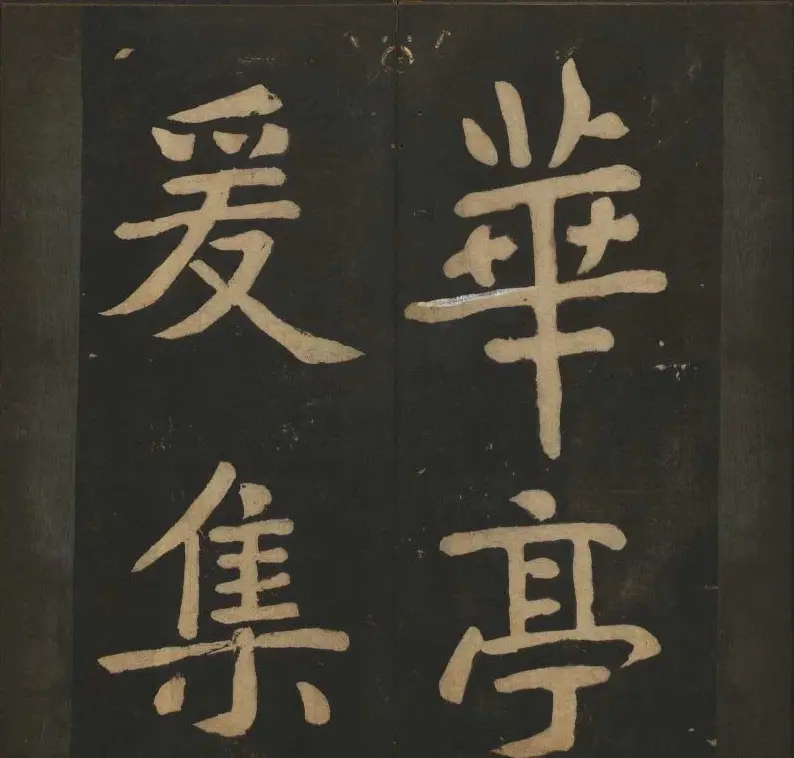 華亭
爰集